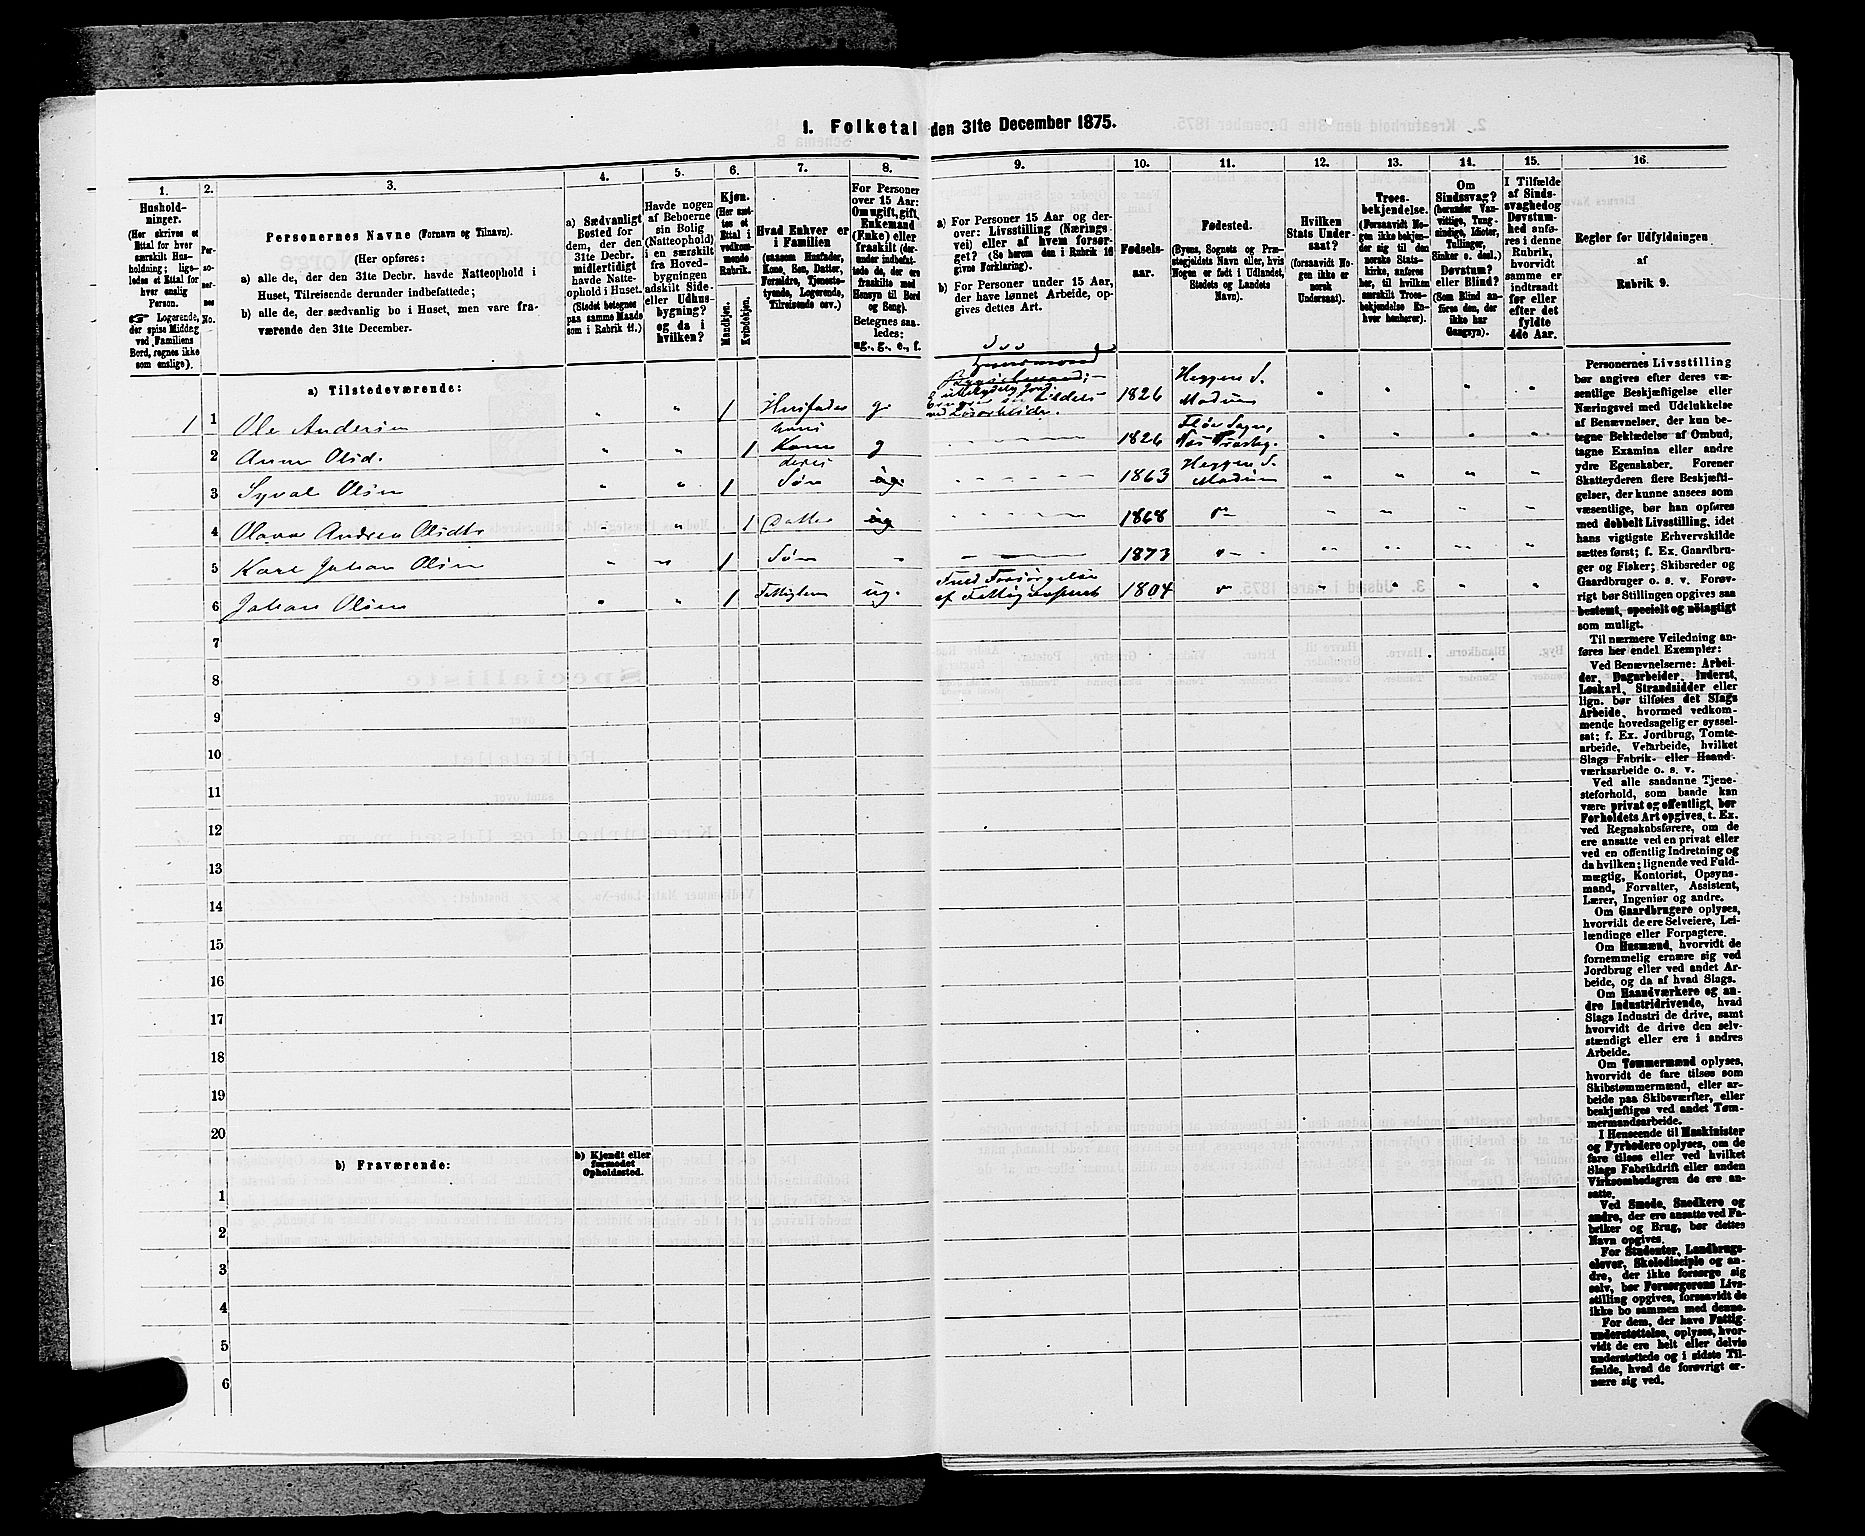 1. Folketal den 31te December 1875.
1.
Hushold-
ninger.
(Her skrives et
Ettal for hver
særskilt Hus-
holdning; lige-
ledes et Ettal for
hver enslig
Person.
Logerende,
der spise Middag
ved Familiens
Bord, regnes ikke
som enslige).
2.
Per-
so-
ner-
nes
No.
3.
Personernes Navne (Fornavn og Tilnavn).
(Her opføres:
a) alle de, der den 31te Decbr. havde Natteophold i
Huset, Tilreisende derunder indbefattede;
b) alle de, der sædvanlig bo i Huset, men vare fra-
værende den 31te December.
4.
a) Sædvanligt
Bosted for
dem, der den
31te Decbr.
midlertidigt
havde Natte-
ophold i Huset.
(Stedet betegnes
paa samme Maade
som i Rubrik 11.)
5.
Havde nogen
af Beboerne
sin Bolig
(Natteophold)
i en særskilt
fra Hoved-
bygningen
adskilt Side-
eller Udhus-
bygning?
og da i
hvilken?
6.
Kjøn.
(Her sæt-
tes et
Ettal i
vedkom-
mende
Rubrik.
Mandkjøn.
Kvindekjøn.
7.
Hvad Enhver er
i Familien
(saasom Husfader,
Kone, Søn, Datter,
Forældre, Tjeneste-
tyende, Logerende,
Tilreisende osv.)
8.
For Personer
over 15 Aar:
Om ugift, gift,
Enkemand
(Enke) eller
fraskilt (der-
under indbefat-
tede de, der ere
fraskilte med
Hensyn til Bord
og Seng).
Betegnes saa-
ledes:
ug., g., e., f.
9.
a) For Personer 15 Aar og der-
over: Livsstilling (Nærings-
vei) eller af hvem forsør-
get? (Se herom den i Rubrik 16
givne Forklaring).
b) For Personer under 15 Aar,
der have lønnet Arbeide, op-
gives dettes Art.
10.
Fødsels-
aar.
11.
Fødested.
(Byens, Sognets og Præ-
stegjeldets Navn eller, hvis
Nogen er født i Udlandet,
Stedets og Landets
Navn).
12.
Hvilken
Stats Under-
saat?
(forsaavidt No-
gen ikke er
norsk
Undersaat).
13.
Troes-
bekjendelse.
(Forsaavidt No-
gen ikke bekjen-
der sig til den
norske Stats-
kirke, anføres
her, til hvilken
særskilt Troes-
bekjendelse En-
hver henhører).
14.
Om
Sindssvag?
(herunder Van-
vittige, Tung-
sindige, Idioter,
Tullinger,
Sinker o. desl.)
Døvstum?
eller Blind?
(Som Blind an-
føres den, der
ikke har
Gangsyn).
15.
I Tilfælde
af Sinds-
svaghed og
Døvstum-
hed anfø-
res i denne
Rubrik,
hvorvidt
samme er
indtraadt
før eller
efter det
fyldte
4de Aar.
16.
Regler for Udfyldningen
af
Rubrik 9.
a) Tilstedeværende:
1 1 Ole Andersen " " 1 Husfader g. 1826 Heggen S. Modum " " " "
2 Anne Olsd. " " 1 hans Kone g 1826 Næs Præsteg. " " " "
3 Syval Olsen " " 1 deres Søn ug. 1863 Heggen S. Modum " " " "
4 Olava Andrea Olsdtr " " 1 Datter ug 1868 " " " "
5 Karl Johan Olsen " " 1 Søn 1873 " " " "
6 Johan Olsen " " 1 Fattiglem ug. Fuld Forsørgelse af Fattigvæsenet 1804 " " " "
7
8
9
10
11
12
13
14
15
16
17
18
19
20
b) Fraværende:
b) Kjendt eller
formodet
Opholdssted.
1
2
3
4
5
6
Personernes Livsstilling
bør angives efter deres væ-
sentlige Beskjæftigelse eller
Næringsvei med Udelukkelse
af Benævnelser, der kun be-
tegne Beklædelse af Ombud,
tagne Examina eller andre
ydre Egenskaber. Forener
Skatteyderen flere Beskjæfti-
gelser, der kunne ansees som
væsentlige, bør han opføres
med dobbelt Livsstilling, idet
hans vigtigste Erhvervskilde
sættes først; f. Ex. Gaardbru-
ger og Fisker; Skibsreder og
Gaardbruger o. s. v. Forøv-
rigt bør Stillingen opgives saa
bestemt, specielt og nøiagtigt
som muligt.
Til nærmere Veiledning an-
føres her endel Exempler:
Ved Benævnelserne: Arbei-
der, Dagarbeider, Inderst,
Løskarl, Strandsidder eller
lign. bør tilføies det Slags
Arbeide, hvormed vedkom-
mende hovedsagelig er syssel-
sat; f. Ex. Jordbrug, Tomte-
arbeide, Veiarbeide, hvilket
Slags Fabrik- eller Haand-
værksarbeide o. s. v.
Ved alle saadanne Tjene-
steforhold, som baade kan
være privat og offentligt, bør
Forholdets Art opgives, t. Ex.
ved Regnskabsførere, om de
ere ansatte ved en privat eller
ved en offentlig Indretning og
da hvilken; lignende ved Fuld-
mægtig, Kontorist, Opsyns-
mand, Forvalter, Assistent,
Lærer, Ingeniør og andre.
Om Gaardbrugere oplyses,
hvorvidt de ere Selveiere, Lei-
lændinge eller Forpagtere.
Om Husmænd, hvorvidt de
fornemmelig ernære sig ved
Jordbrug eller ved andet Ar-
beide, og da af hvad Slags.
Om Haandværkere og an-
dre Industridrivende, hvad
Slags Industri de drive, samt
hvorvidt de drive den selv-
stændigt eller ere i andres
Arbeide.
Om Tømmermænd oplyses,
hvorvidt de fare tilsøs som
Skibstømmermænd, eller ar-
beide paa Skibsværfter, eller
beskjæftiges ved andet Tøm-
mermandsarbeide.
I Henseende til Maskinister
og Fyrbødere oplyses, om de
fare tilsøs eller ved hvilket
Slags Fabrikdrift eller anden
Virksomhedsgren de ere an-
satte.
Ved Smede, Snedkere og
andre, der ere ansatte ved Fa-
briker og Brug, bør dettes
Navn opgives.
For Studenter, Landbrugs-
elever, Skoledisciple og an-
dre, der ikke forsørge sig
selv, bør Forsørgerens Livs-
stilling opgives, forsaavidt de
ikke bo sammen med denne.
For dem, der have Fattig-
understøttelse, oplyses, hvor-
vidt de ere helt eller delvis
understøttede og i sidste Til-
fælde, hvad de forøvrigt er-
nære sig ved.